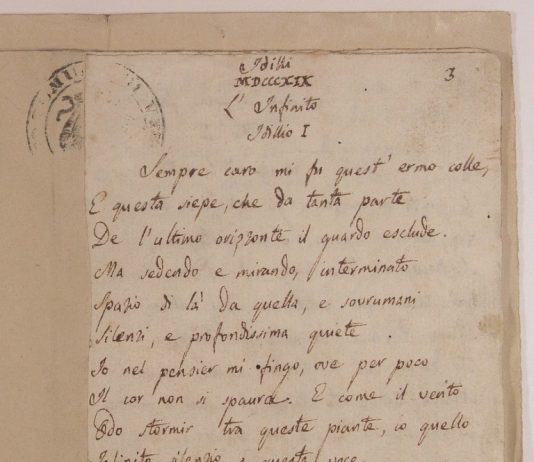 Idilli
MDCCCXIX
3
L' Infinito
Idillio I
Sempre caro mi fu quest' ermo colle,
E questa siepe, che da tanta parte
De l'ultimo orizzonte il guardo esclude.
Ma sedendo e mirando, interminato
Spazio di là da quella, e sovrumani
Silenzi, e profondissima quiete
Io nel pensier mi fingo, ove per poco
Il cor non si spaura. E come il vento
Odo stormir tra queste piante, io quello
Infinito silenzio a questa voce